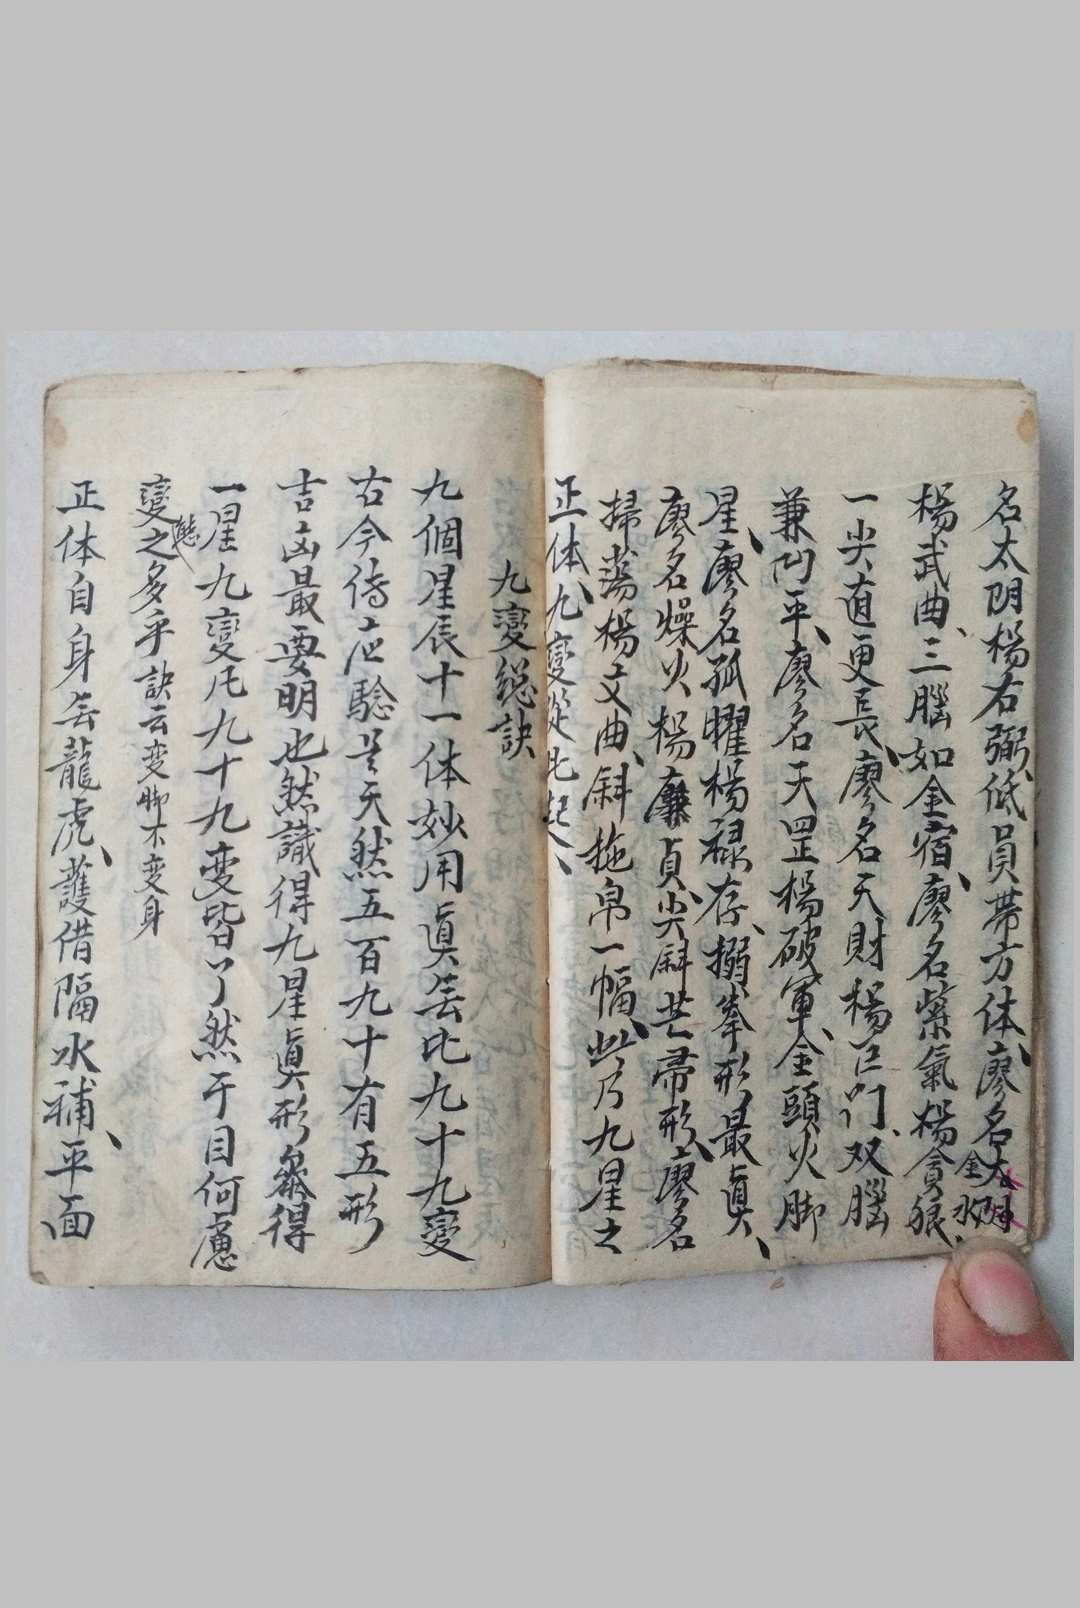 名太阴楊右弼低員帶方体廖名太阴金水
楊武曲三腦如金宿廖名紫氣楊貪狼
一尖直更長廖名天財楊巨门双腦
兼凹平廖名天罡楊破軍金頭火脚
星廖名孤曜楊禄存搦拳形最真
廖名燥火楊廉貞尖斜芒帚形廖名
掃蕩楊文曲斜拖帛一幅此乃九星之
正体九變從此起
九變總訣
九個星辰十一体妙用真無比九十九變
古今傳应驗是天然五百九十有五形
吉凶最要明也然識得九星真形來得
一星九變凡九十九变皆了然于目何慮
變態之多乎訣云变脚不变身
正体自身無龍虎護借隔水補平面